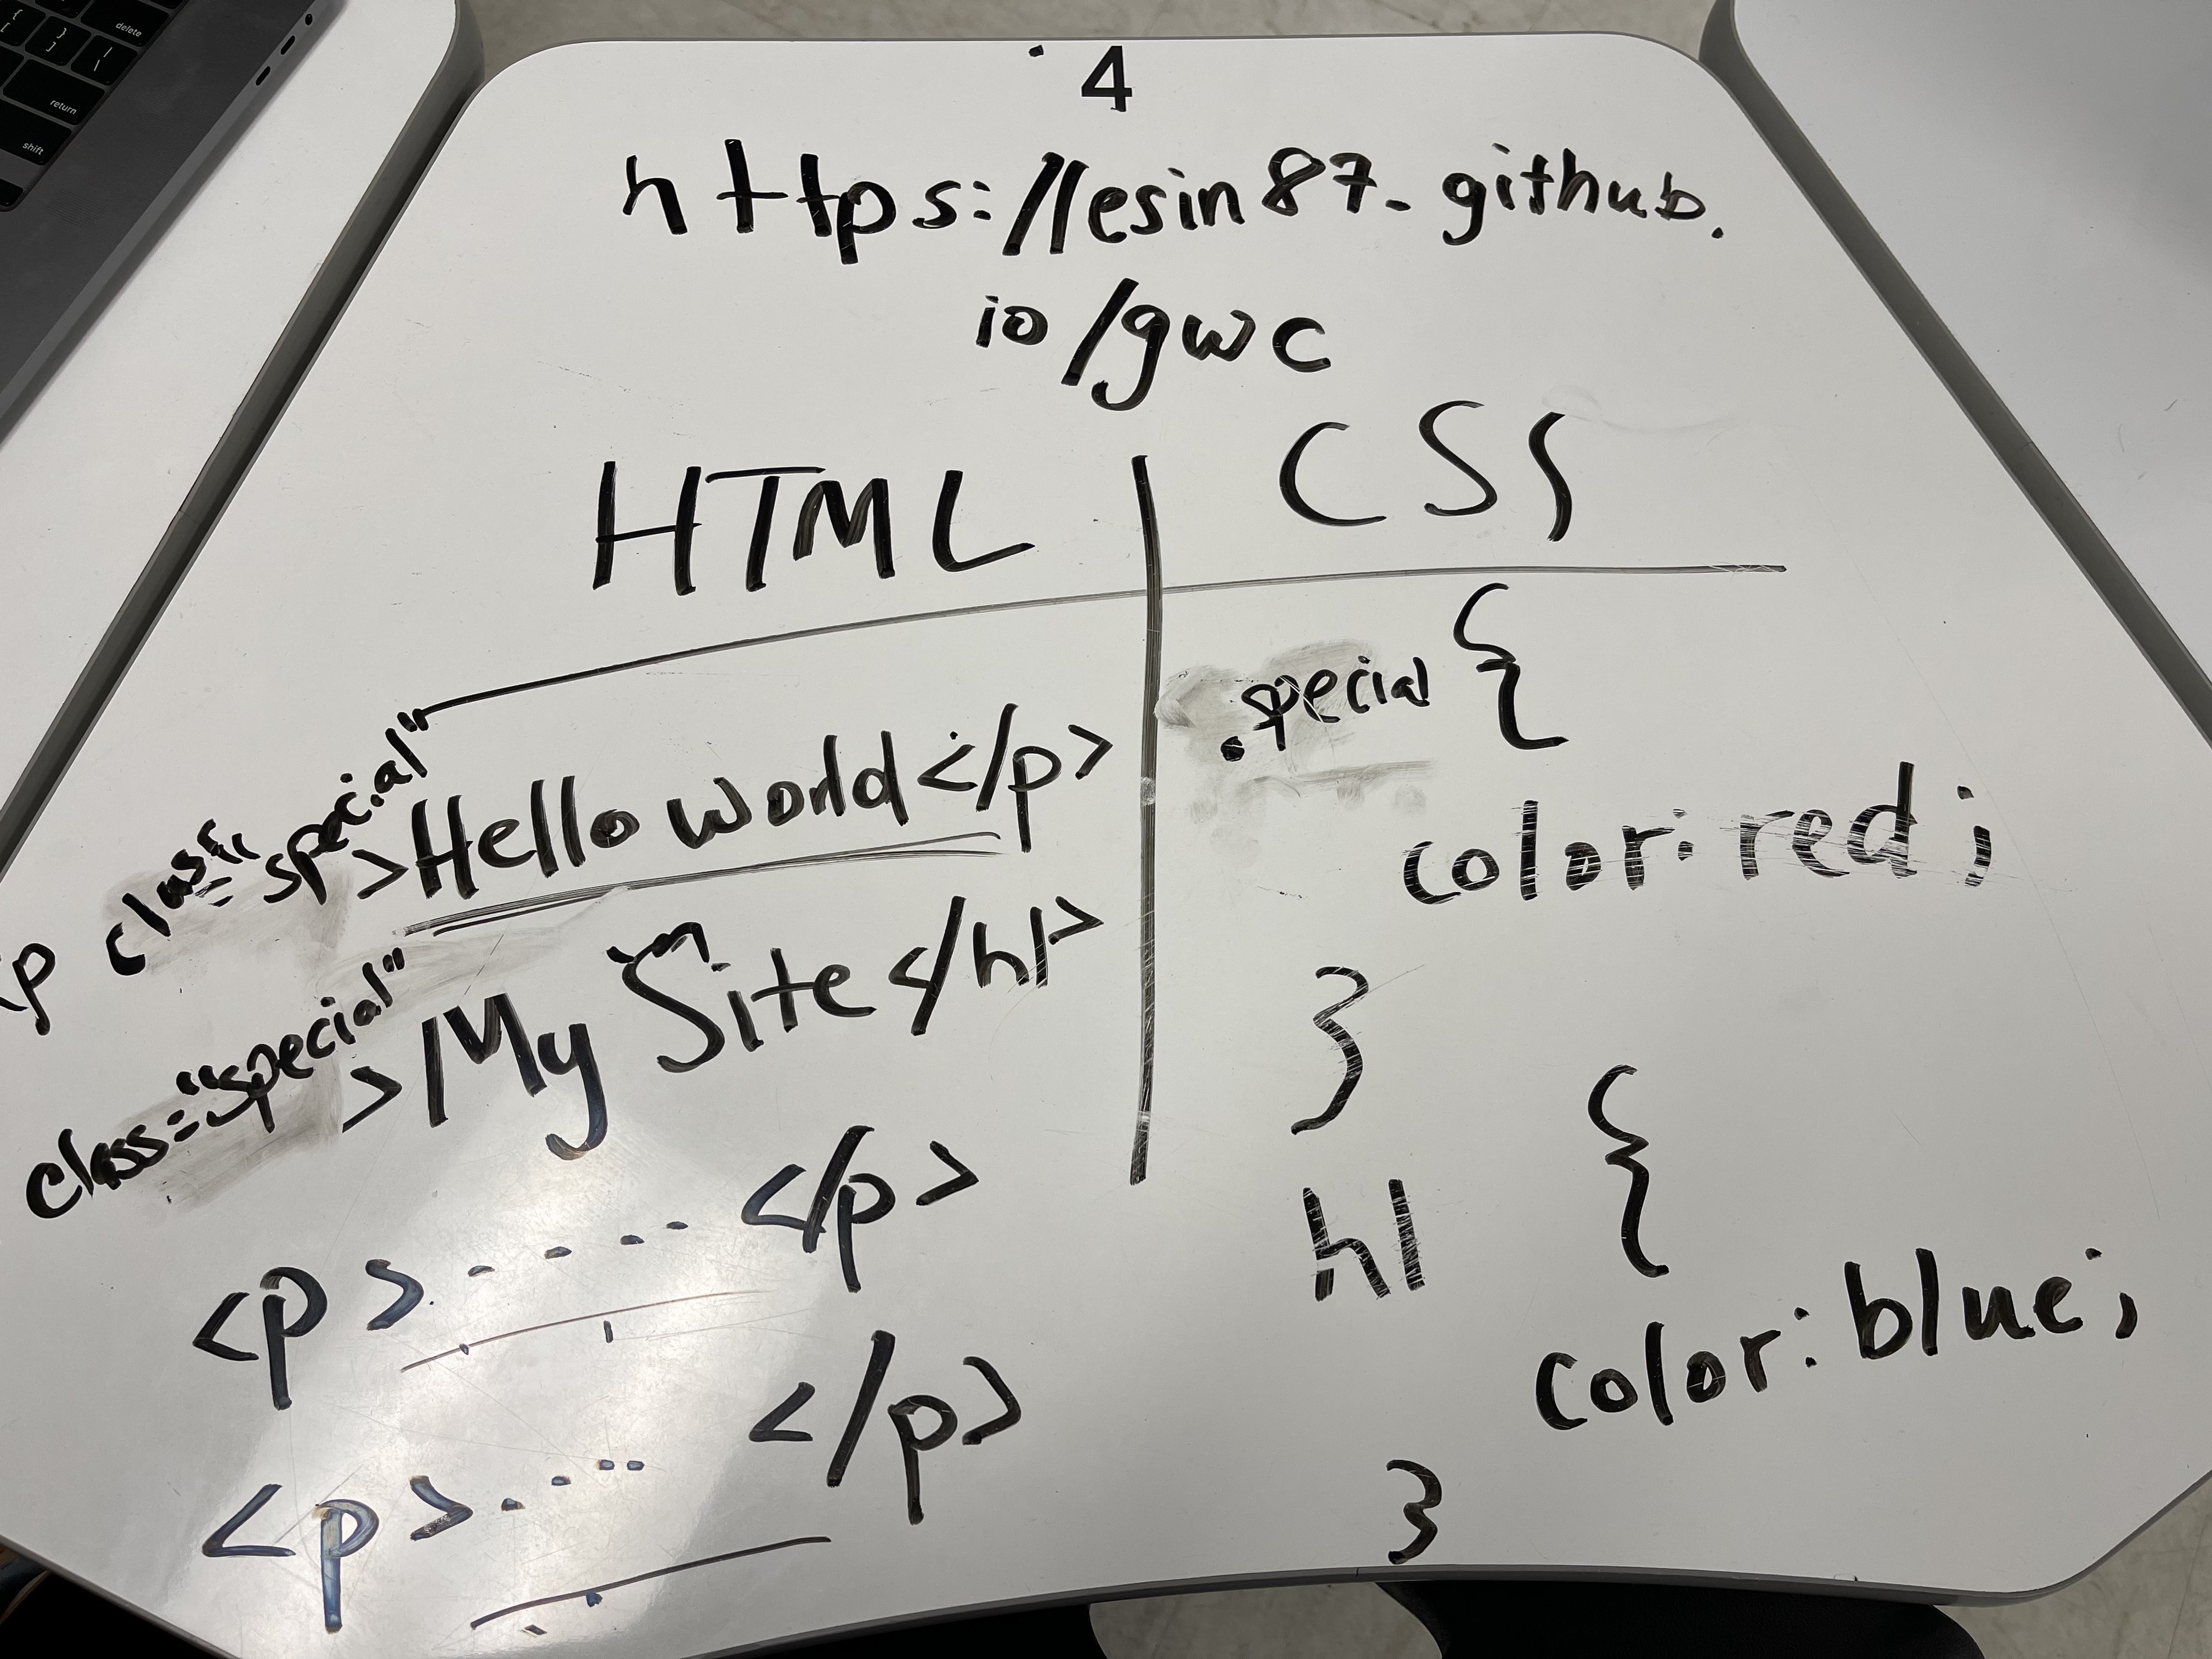 delete
return
shift
4
https://esin87. github.
io/gwc
HTML
CSS
<p class="special"
>Hello world</p>
class="special"
>My Site</h1>
<p>......</p>
<p>.....</p>
.special {
color: red;
}
h1 {
color: blue;
}